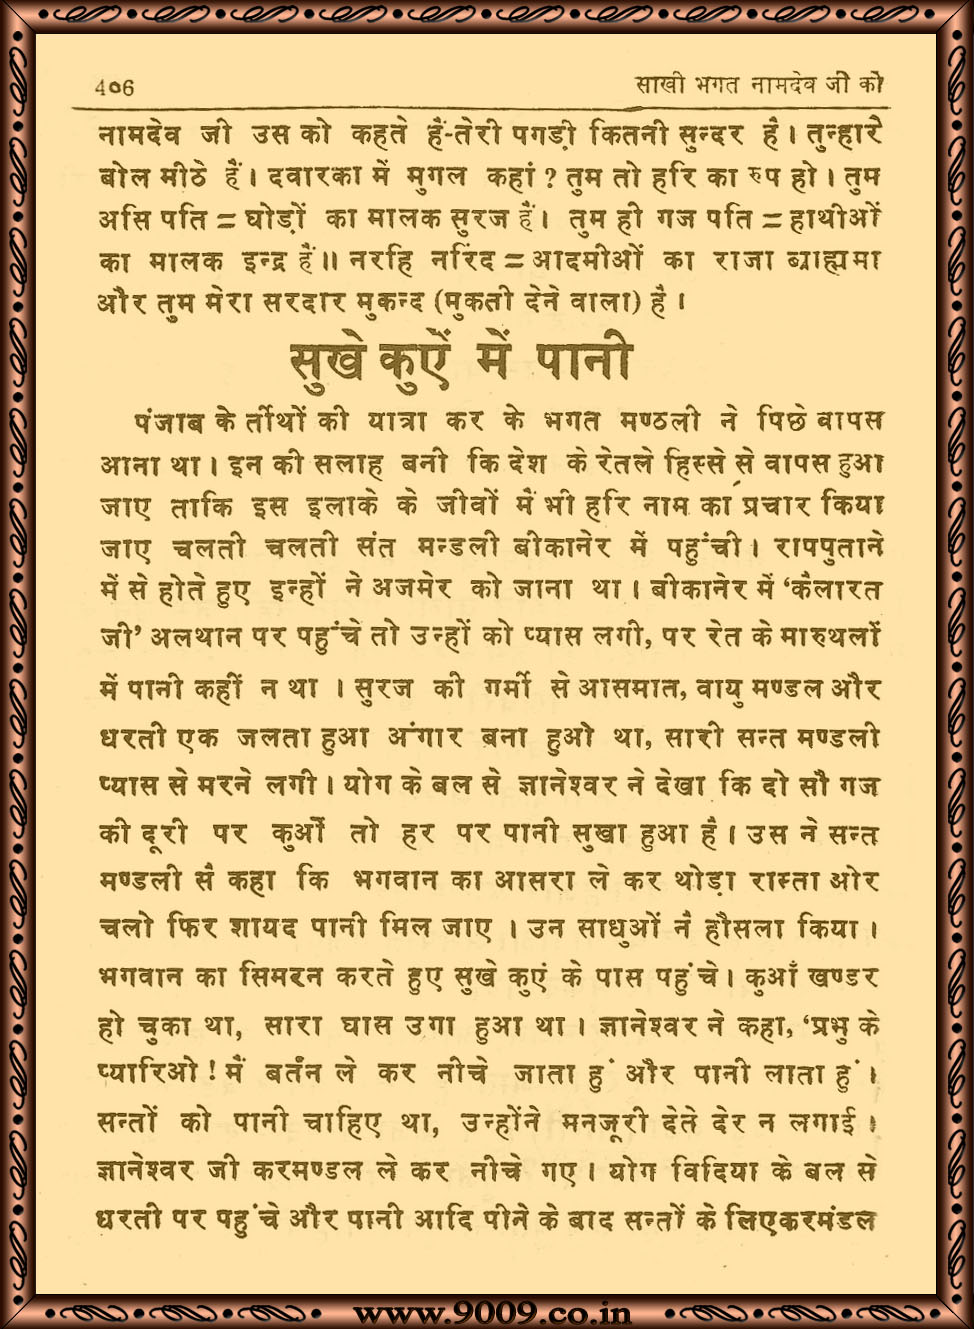 406 साखी भगत नामदेव जी को
नामदेव जी उस को कहते हैं-तेरी पगड़ी कितनी सुन्दर है। तुन्हारे
बोल मीठे हैं। दवारका में मुगल कहां ? तुम तो हरि का रुप हो। तुम
असि पति = घोड़ों का मालक सुरज हैं। तुम ही गज पति = हाथीओं
का मालक इन्द्र हैं॥ नरहि नरिंद = आदमीओं का राजा ब्राह्यमा
और तुम मेरा सरदार मुकन्द (मुकती देने वाला) है।
सुखे कुएें में पानी
पंजाब के र्तीथों की यात्रा कर के भगत मण्ठली ने पिछे वापस
आना था। इन की सलाह बनी कि देश के रेतले हिस्से से वापस हुआ
जाए ताकि इस इलाके के जीवों में भी हरि नाम का प्रचार किया
जाए चलती चलती संत मन्डली बीकानेर में पहुंची। रापपुताने
में से होते हुए इन्हों ने अजमेर को जाना था। बीकानेर में ‘कैलारत
जी’ अलथान पर पहुंचे तो उन्हों को प्यास लगी, पर रेत के मारुथलों
में पानी कहीं न था । सुरज की गर्मी से आसमात, वायु मण्डल और
धरती एक जलता हुआ अंगार बना हुओ था, सारी सन्त मण्डली
प्यास से मरने लगी। योग के बल से ज्ञानेश्वर ने देखा कि दो सौ गज
की दूरी पर कुआँ तो हर पर पानी सुखा हुआ है। उस ने सन्त
मण्डली सै कहा कि भगवान का आसरा ले कर थोड़ा रास्ता ओर
चलो फिर शायद पानी मिल जाए । उन साधुओं नै हौसला किया।
भगवान का सिमरन करते हुए सुखे कुएं के पास पहुंचे। कुआँ खण्डर
हो चुका था, सारा घास उगा हुआ था । ज्ञानेश्वर ने कहा, ‘प्रभु के
प्यारिओ ! मैं बर्तन ले कर नीचे जाता हुं और पानी लाता हुं।
सन्तों को पानी चाहिए था, उन्होंने मनजूरी देते देर न लगाई।
ज्ञानेश्वर जी करमण्डल ले कर नीचे गए। योग विदिया के बल से
धरती पर पहुंचे और पानी आदि पीने के बाद सन्तों के लिएकरमंडल
www.9009.co.in